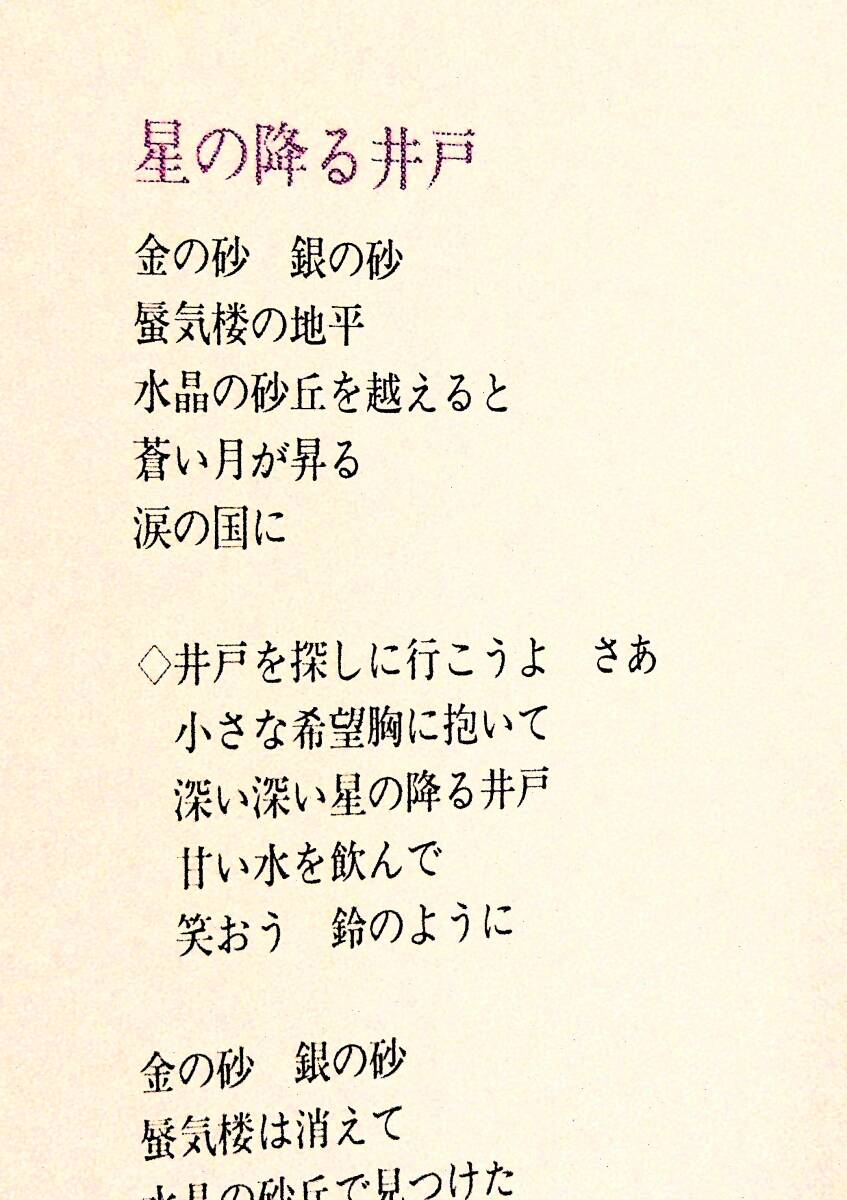 星の降る井戸
金の砂　銀の砂
蜃気楼の地平
水晶の砂丘を越えると
蒼い月が昇る
涙の国に
◇井戸を探しに行こうよ　さあ
小さな希望胸に抱いて
深い深い星の降る井戸
甘い水を飲んで
笑おう　鈴のように
金の砂　銀の砂
蜃気楼は消えて
水晶の砂丘で見つけた